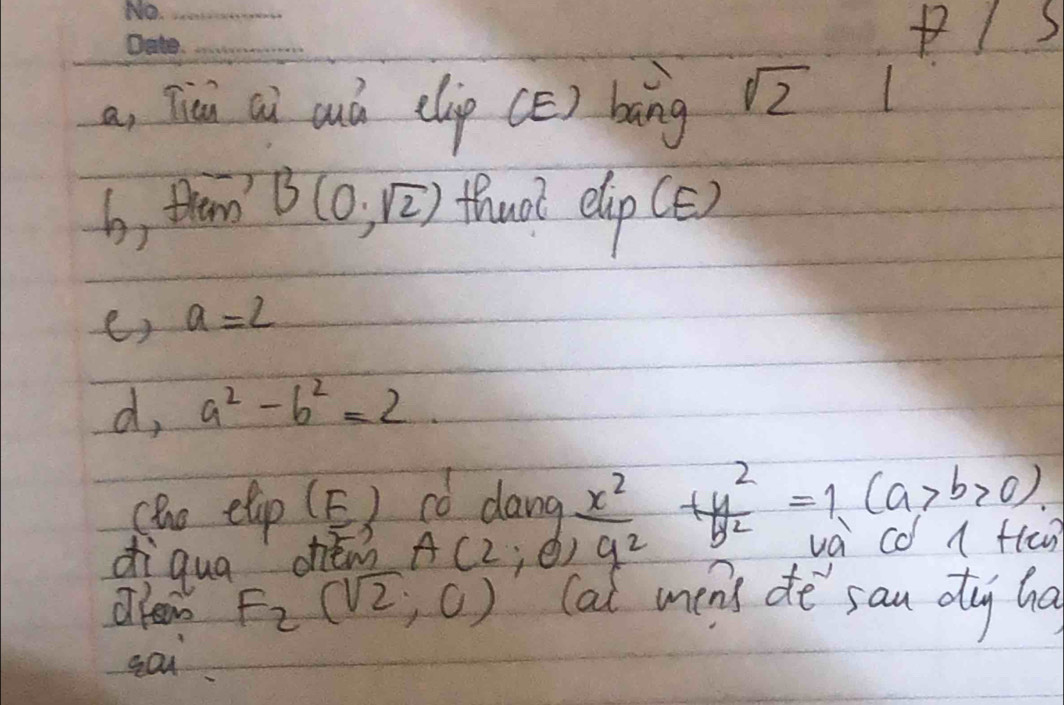 No. ............
Date. ............
Đ / S
a, Tiêu cự của elip (E) bằng √2 |
b, Điểm B (0; √2) thuộc elip (E)
c, a = 2
d, a² - b² = 2.
Cho elip (E) có dạng x²/a² + y²/b² = 1 (a > b > 0).
đi qua điểm A (2; 0) và có 1 tiêu
điểm F₂ (√2; 0) Các mệnh đề sau đúng ha
sai.